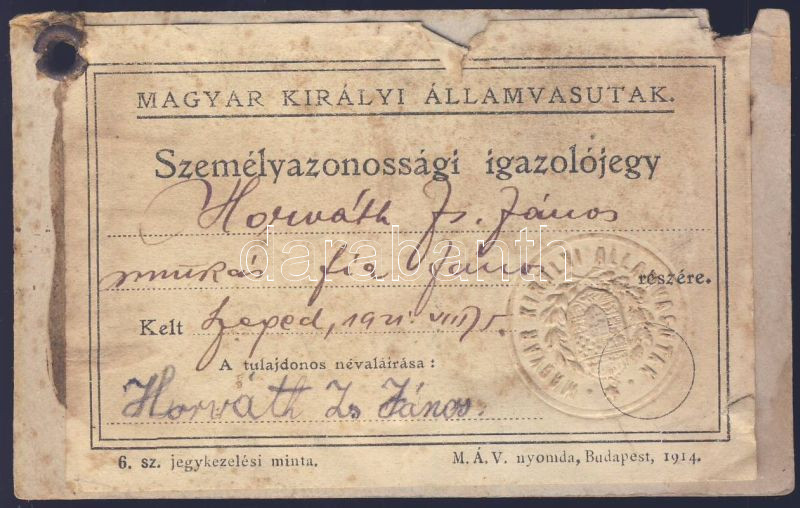 MAGYAR KIRÁLYI ÁLLAMVASUTAK.
Személyazonossági igazolójegy
Horváth Is. János
munkás fia János részére.
Kelt Szeged, 1921. VIII/5
A tulajdonos névaláírása:
Horváth Is János.
6. sz. jegykezelési minta. M. Á. V. nyomda, Budapest, 1914.
MAGYAR KIRÁLYI ÁLLAMVASUTAK
darabanth